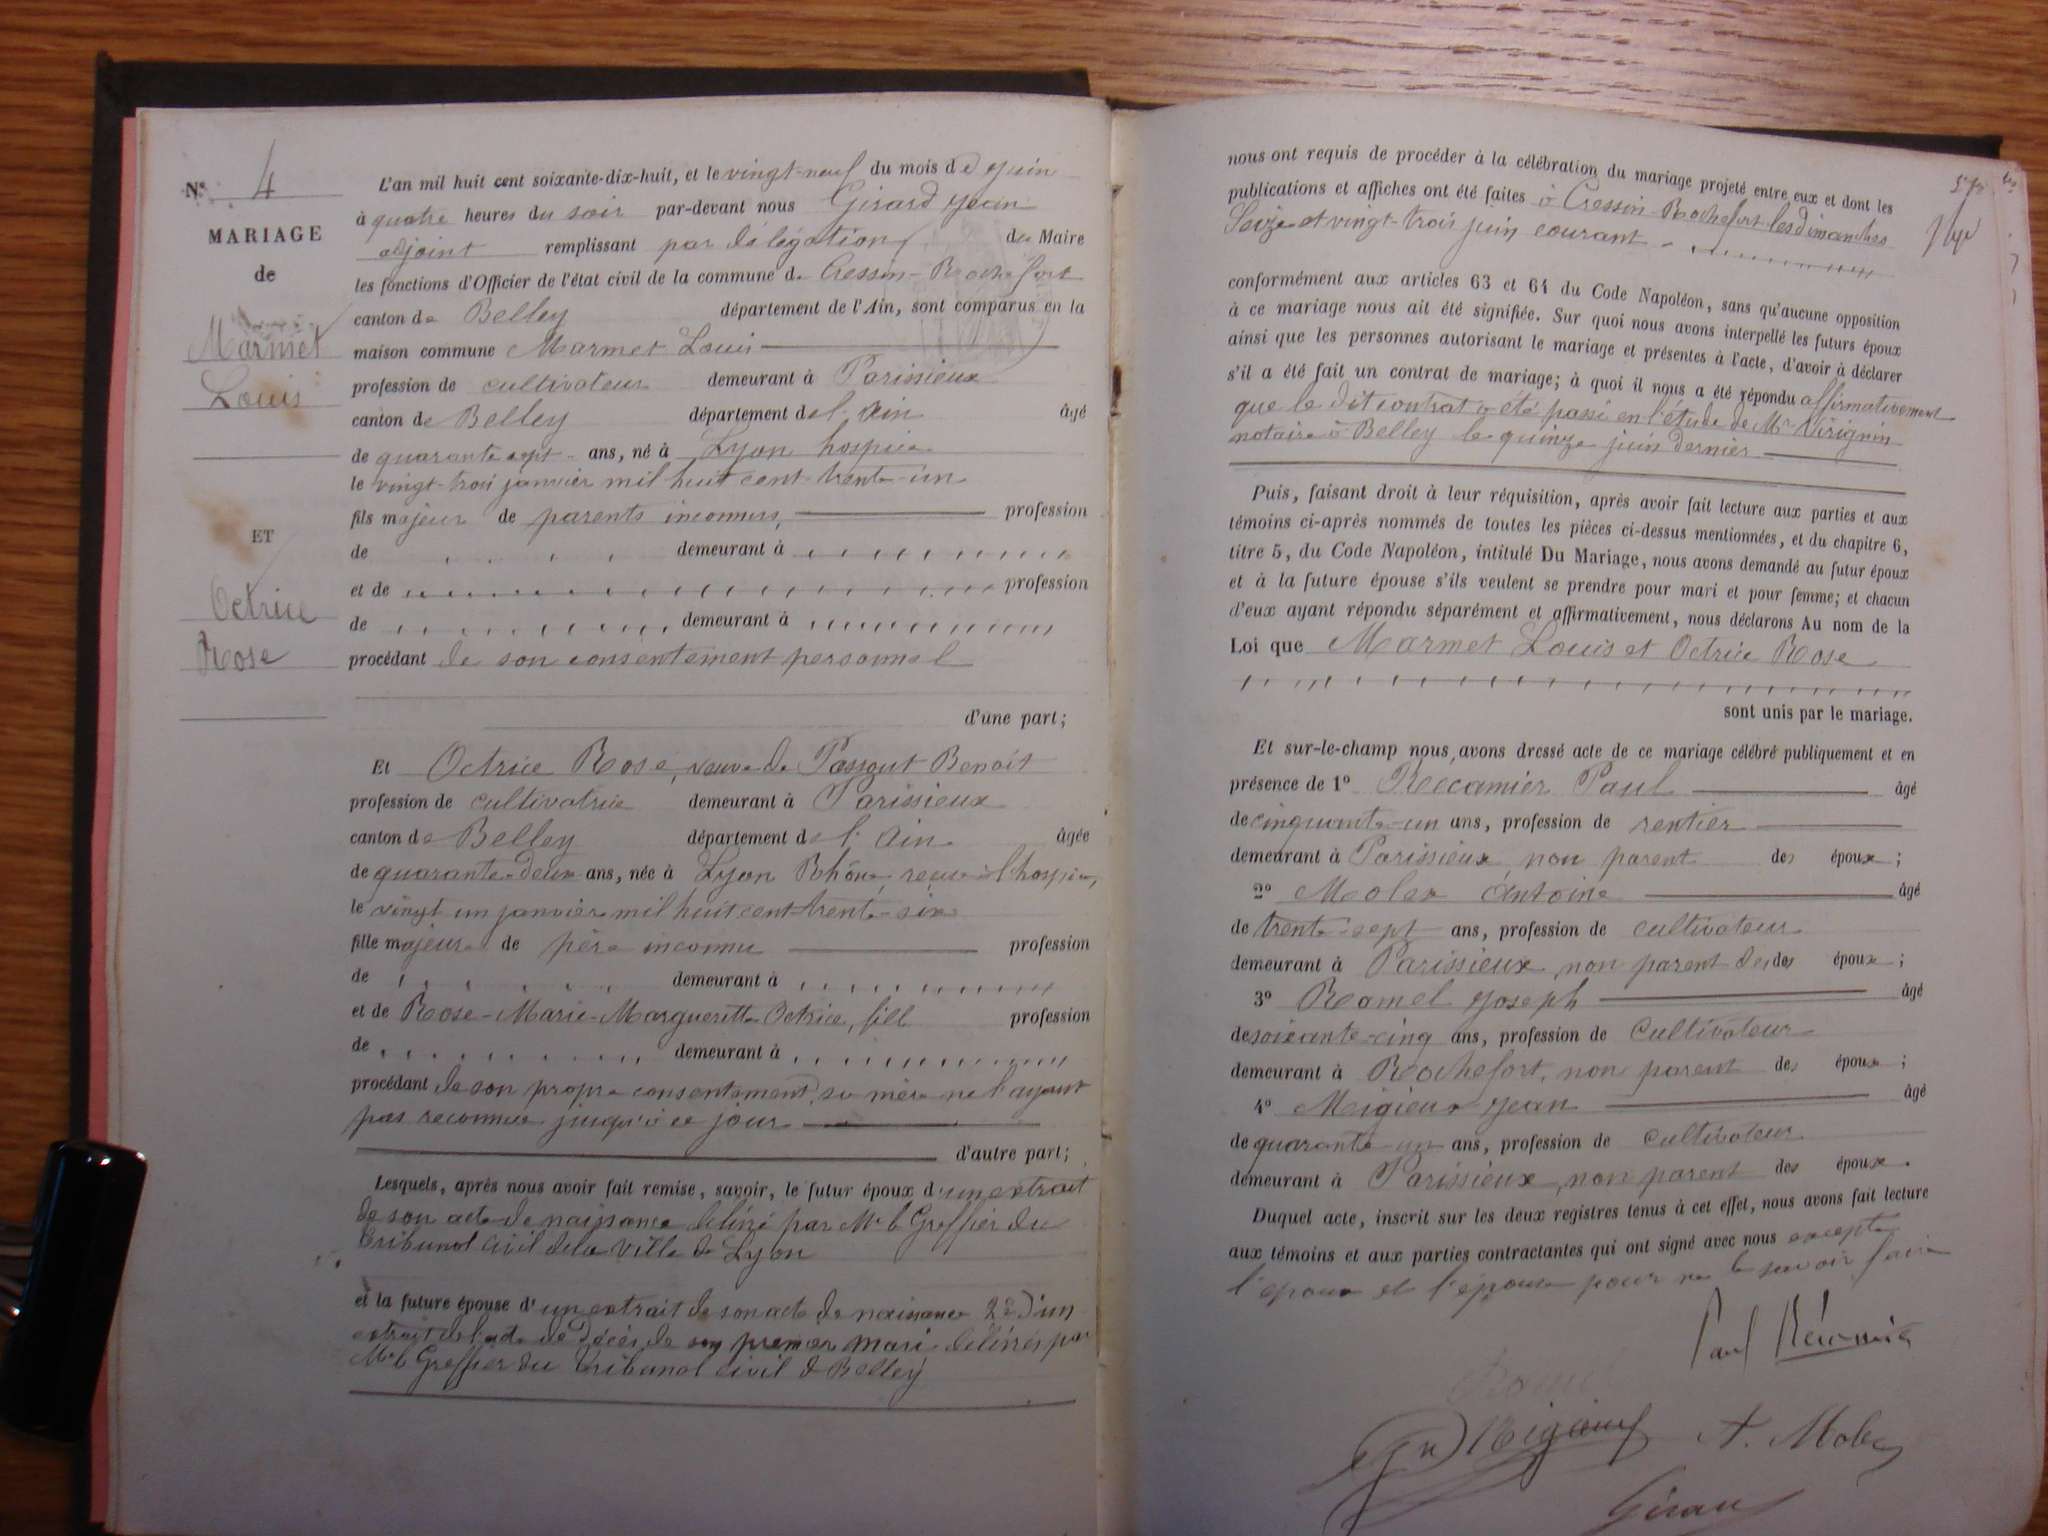 N° 4
MARIAGE
de
Marmet
Louis
ET
Octrice
Rose
L'an mil huit cent soixante-dix-huit, et le vingt-neuf du mois de juin
à quatre heures du soir par-devant nous Girard Jean
adjoint remplissant par délégation du Maire
les fonctions d'Officier de l'état civil de la commune de Cressin-Rochefort
canton de Belley département de l'Ain, sont comparus en la
maison commune Marmet Louis
profession de cultivateur demeurant à Parissieux
canton de Belley département de l'Ain âgé
de quarante sept ans, né à Lyon hospice
le vingt-trois janvier mil huit cent trente-un
fils majeur de parents inconnus, profession
de demeurant à
et de profession
de demeurant à
procédant de son consentement personnel
d'une part;
Et Octrice Rose, veuve de Passout Benoit
profession de cultivatrice demeurant à Parissieux
canton de Belley département de l'Ain âgée
de quarante-deux ans, née à Lyon Rhône, reçue à l'hospice,
le vingt un janvier mil huit cent trente-six
fille majeure de père inconnu profession
de demeurant à
et de Rose-Marie-Margueritte Octrice, fille profession
de demeurant à
procédant de son propre consentement, sa mère ne l'ayant
pas reconnue jusqu'à ce jour
d'autre part;
Lesquels, après nous avoir fait remise, savoir, le futur époux d'un extrait
de son acte de naissance délivré par Mr le Greffier du
tribunal civil de la ville de Lyon
et la future épouse d'un extrait de son acte de naissance 2° d'un
extrait de l'acte de décès de son premier mari délivrés par
Mr le Greffier du tribunal civil de Belley
nous ont requis de procéder à la célébration du mariage projeté entre eux et dont les
publications et affiches ont été faites à Cressin-Rochefort les dimanches
Seize et vingt-trois juin courant
conformément aux articles 63 et 64 du Code Napoléon, sans qu'aucune opposition
à ce mariage nous ait été signifiée. Sur quoi nous avons interpellé les futurs époux
ainsi que les personnes autorisant le mariage et présentes à l'acte, d'avoir à déclarer
s'il a été fait un contrat de mariage; à quoi il nous a été répondu affirmativement
que le dit contrat a été passé en l'étude de Mr Virignin
notaire à Belley le quinze juin dernier
Puis, faisant droit à leur réquisition, après avoir fait lecture aux parties et aux
témoins ci-après nommés de toutes les pièces ci-dessus mentionnées, et du chapitre 6,
titre 5, du Code Napoléon, intitulé Du Mariage, nous avons demandé au futur époux
et à la future épouse s'ils veulent se prendre pour mari et pour femme; et chacun
d'eux ayant répondu séparément et affirmativement, nous déclarons Au nom de la
Loi que Marmet Louis et Octrice Rose
sont unis par le mariage.
Et sur-le-champ nous avons dressé acte de ce mariage célébré publiquement et en
présence de 1° Reccamier Paul âgé
de cinquante-un ans, profession de rentier
demeurant à Parissieux non parent des époux;
2° Molex Antoine âgé
de trente-sept ans, profession de cultivateur
demeurant à Parissieux non parent des des époux;
3° Ramel Joseph âgé
de soixante-cinq ans, profession de Cultivateur
demeurant à Rochefort, non parent des époux;
4° Migieux Jean âgé
de quarante-un ans, profession de cultivateur
demeurant à Parissieux, non parent des époux.
Duquel acte, inscrit sur les deux registres tenus à cet effet, nous avons fait lecture
aux témoins et aux parties contractantes qui ont signé avec nous excepté
l'époux et l'épouse pour ne le savoir faire
Paul Récamier
Migieux
A. Molex
Girard